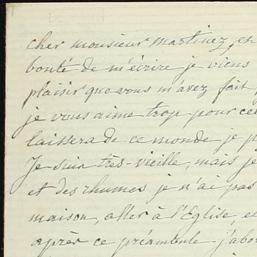 cher monsieur Martinez, en
bonté de m'écrire je viens
plaisir que vous m'avez fait,
je vous aime trop pour ce
laissera de ce monde je p
Je suis très-vieille, mais je
et des rhumes je n'ai pas
maison, aller à l'Eglise, e
après ce préambule j'abo